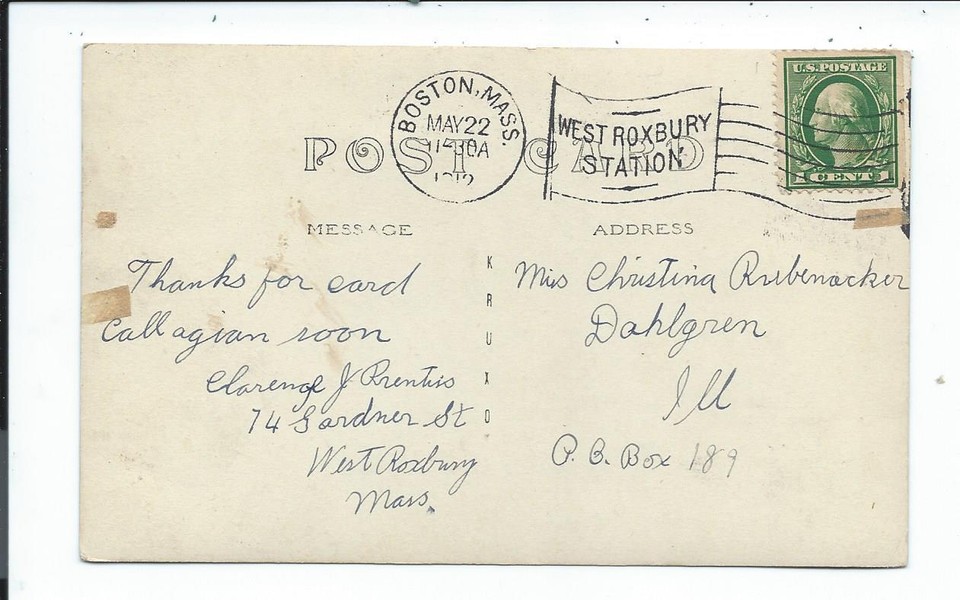 BOSTON, MASS.
MAY 22
1912
WEST ROXBURY
STATION
U.S. POSTAGE
1 CENT 1
POST CARD
MESSAGE
ADDRESS
Thanks for card
Call agian soon
Clarence J Prentis
74 Gardner St
West Roxbury
Mass.
KRUXO
Miss Christina Rubenacker
Dahlgren
Ill
P. B. Box 189